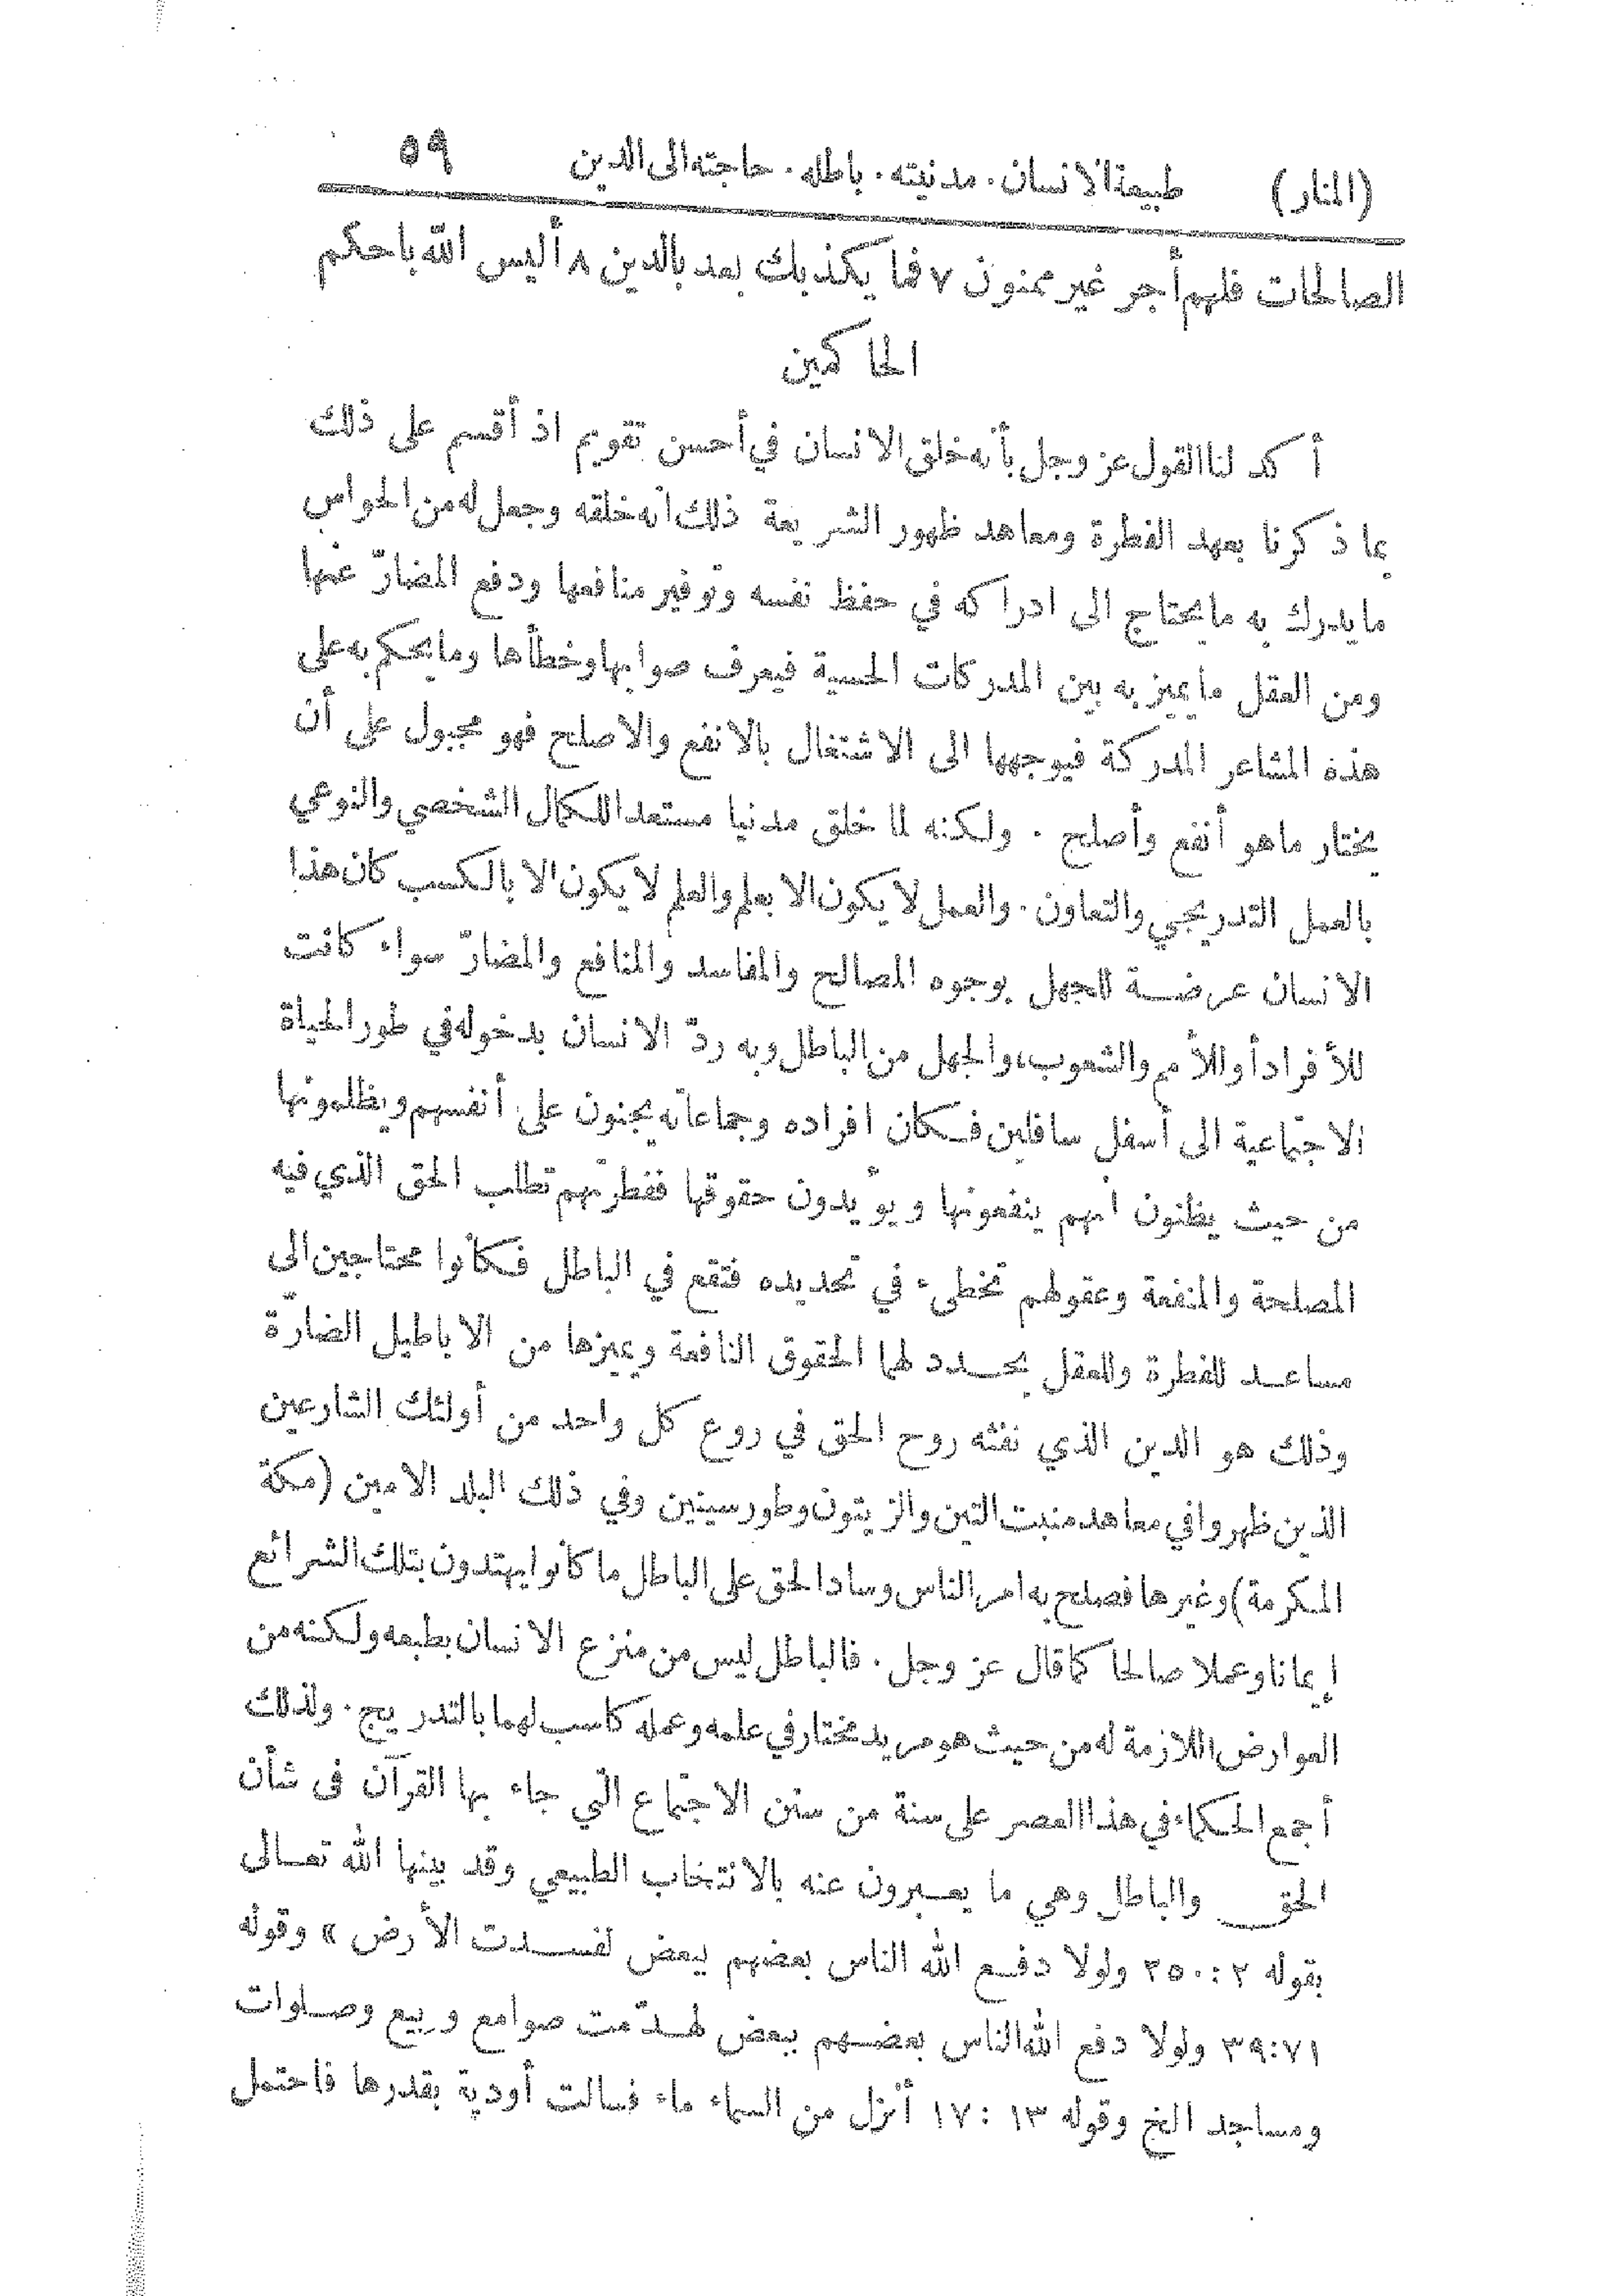 (المنار) طبيعة الانسان . مدنيته . باطله . حاجته الى الدين ٥٩
الصالحات فلهم أجر غير ممنون ٧ فما يكذبك بعد بالدين ٨ أليس الله باحكم
الحاكمين
أكد لنا القول عز وجل بأنه خلق الانسان في أحسن تقويم اذ أقسم على ذلك
بما ذكرنا بعهد الفطرة ومعاهد ظهور الشريعة ذلك انه خلقه وجعل له من الحواس
ما يدرك به ما يحتاج الى ادراكه في حفظ نفسه وتوفير منافعها ودفع المضارّ عنها
ومن العقل ما يميز به بين المدركات الحسية فيعرف صوابها وخطأها وما يحكم به على
هذه المشاعر المدركة فيوجهها الى الاشتغال بالانفع والاصلح فهو مجبول على أن
يختار ما هو أنفع وأصلح . ولكنه لما خلق مدنيا مستعدا للكمال الشخصي والنوعي
بالعمل التدريجي والتعاون . والعمل لا يكون الا بعلم والعلم لا يكون الا بالكسب كان هذا
الانسان عرضة للجهل بوجوه المصالح والمفاسد والمنافع والمضارّ سواء كانت
للأفراد أو للأمم والشعوب، والجهل من الباطل وبه ردّ الانسان بدخوله في طور الحياة
الاجتماعية الى أسفل سافلين فكان افراده وجماعاته يجنون على أنفسهم ويظلمونها
من حيث يظنون انهم ينفعونها ويؤيدون حقوقها ففطرتهم تطلب الحق الذي فيه
المصلحة والمنفعة وعقولهم تخطىء في تحديده فتقع في الباطل فكانوا محتاجين الى
مساعد للفطرة وللعقل يحدد لهما الحقوق النافعة ويميزها من الاباطيل الضارّة
وذلك هو الدين الذي نفثه روح الحق في روع كل واحد من أولئك الشارعين
الذين ظهروا في معاهد منبت التين والزيتون وطور سينين وفي ذلك البلد الامين (مكة
المكرمة) وغيرها فصلح به امر الناس وساد الحق على الباطل ما كانوا يهتدون بتلك الشرائع
إيمانا وعملا صالحا كما قال عز وجل . فالباطل ليس من منزع الانسان بطبعه ولكنه من
العوارض اللازمة له من حيث هو مريد مختار في علمه وعمله كاسب لهما بالتدريج . ولذلك
أجمع الحكماء في هذا العصر على سنة من سنن الاجتماع التي جاء بها القرآن فى شأن
الحق والباطل وهي ما يعبرون عنه بالانتخاب الطبيعي وقد بينها الله تعالى
بقوله ٢ : ٢٥٠ ولولا دفع الله الناس بعضهم ببعض لفسدت الأرض » وقوله
٣٩:٧١ ولولا دفع الله الناس بعضهم ببعض لهدّمت صوامع وبيع وصلوات
ومساجد الخ وقوله ١٣ : ١٧ أنزل من السماء ماء فسالت أودية بقدرها فاحتمل